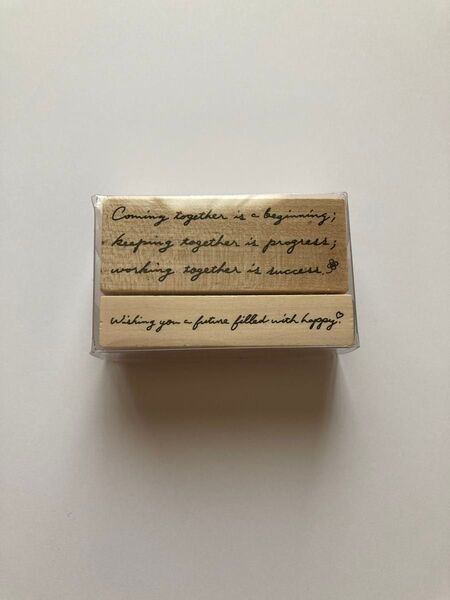 Coming together is a beginning;
keeping together is progress;
working together is success.
Wishing you a future filled with happy.